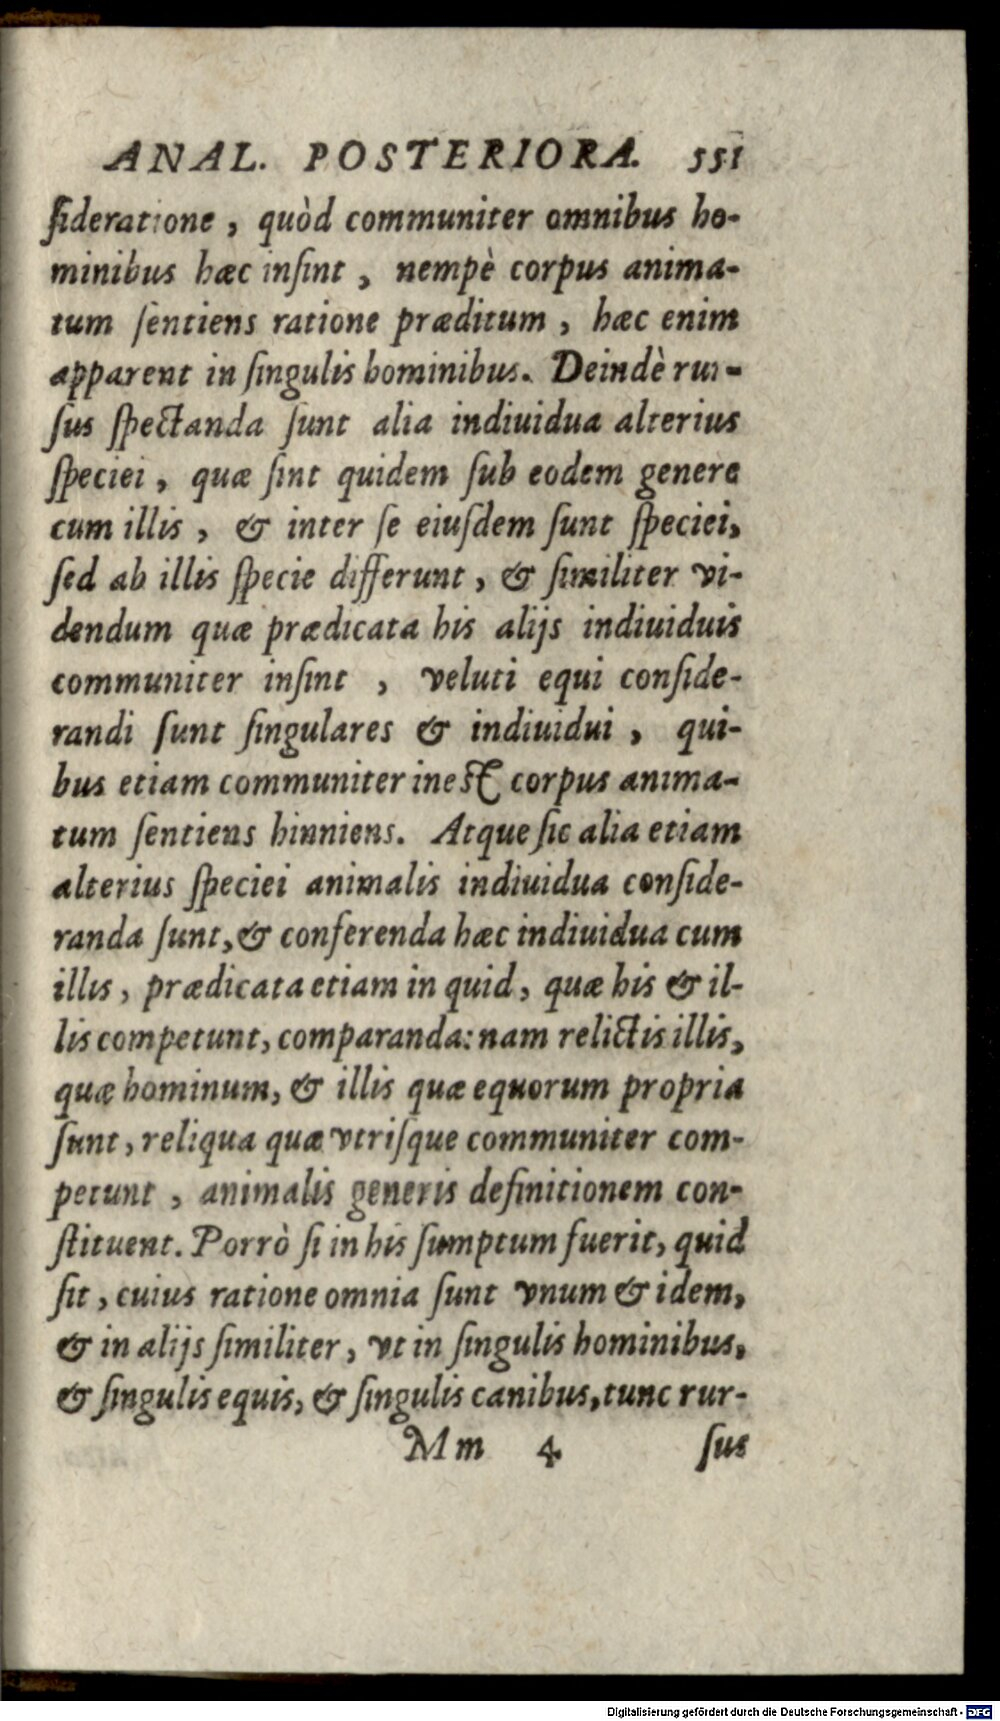 ANAL. POSTERIORA. 551
ſideratione , quòd communiter omnibus ho-
minibus hæc inſint , nempè corpus anima-
tum ſentiens ratione præditum , hæc enim
apparent in ſingulis hominibus. Deindè rur-
ſus ſpectanda ſunt alia indiuidua alterius
ſpeciei , quæ ſint quidem ſub eodem genere
cum illis , & inter ſe eiuſdem ſunt ſpeciei,
ſed ab illis ſpecie differunt , & ſimiliter vi-
dendum quæ prædicata his alijs indiuiduis
communiter inſint , veluti equi conſide-
randi ſunt ſingulares & indiuidui , qui-
bus etiam communiter ineſt corpus anima-
tum ſentiens hinniens. Atque ſic alia etiam
alterius ſpeciei animalis indiuidua conſide-
randa ſunt, & conferenda hæc indiuidua cum
illis , prædicata etiam in quid , quæ his & il-
lis competunt, comparanda: nam relictis illis,
quæ hominum, & illis quæ equorum propria
ſunt , reliqua quæ vtriſque communiter com-
petunt , animalis generis definitionem con-
ſtituent. Porrò ſi in his ſumptum fuerit, quid
ſit , cuius ratione omnia ſunt vnum & idem,
& in alijs ſimiliter , vt in ſingulis hominibus,
& ſingulis equis, & ſingulis canibus, tunc rur-
Mm 4 ſus
Digitalisierung gefördert durch die Deutsche Forschungsgemeinschaft - DFG